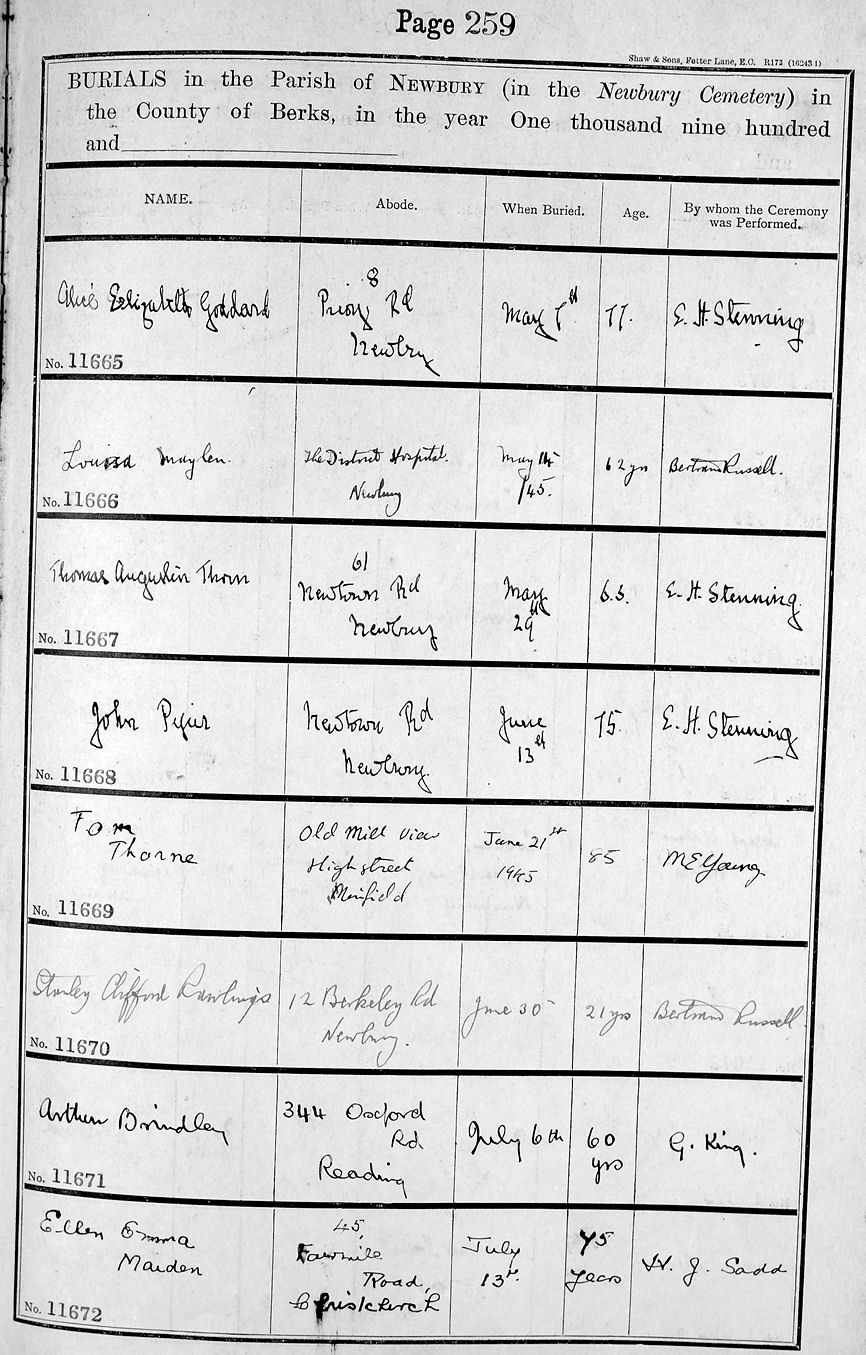 Page 259
Shaw & Sons, Fetter Lane, E.C. R173 (16243 1)
BURIALS in the Parish of NEWBURY (in the Newbury Cemetery) in
the County of Berks, in the year One thousand nine hundred
and
NAME. Abode. When Buried. Age. By whom the Ceremony
was Performed.
8
Alice Elizabeth Goddard Priory Rd May 7. E. H. Stenning
Newbury
No. 11665
Louisa Maylen. The District Hospital. May 14 62 yrs Bertram Russell.
Newbury /45.
No. 11666
61
Thomas Augustin Thorn Newtown Rd May 63. E. H. Stenning
Newbury 29th
No. 11667
John Newtown Rd June 75. E. H. Stenning
Newbury. 13th
No. 11668
Tom Old Mill View June 21st
Thorne High street 1945 85 M E Young
No. 11669
Stanley Clifford Rawlings 12 Berkeley Rd June 30 21 yrs Bertram Russell.
Newbury.
No. 11670
Arthur Brindley 344 Oxford July 6th 60 G. King.
Rd yrs
Reading
No. 11671
Ellen Emma 45, July 75 W. J. Sadd
Maiden Fairmile 13th. years
Road,
Christchurch
No. 11672